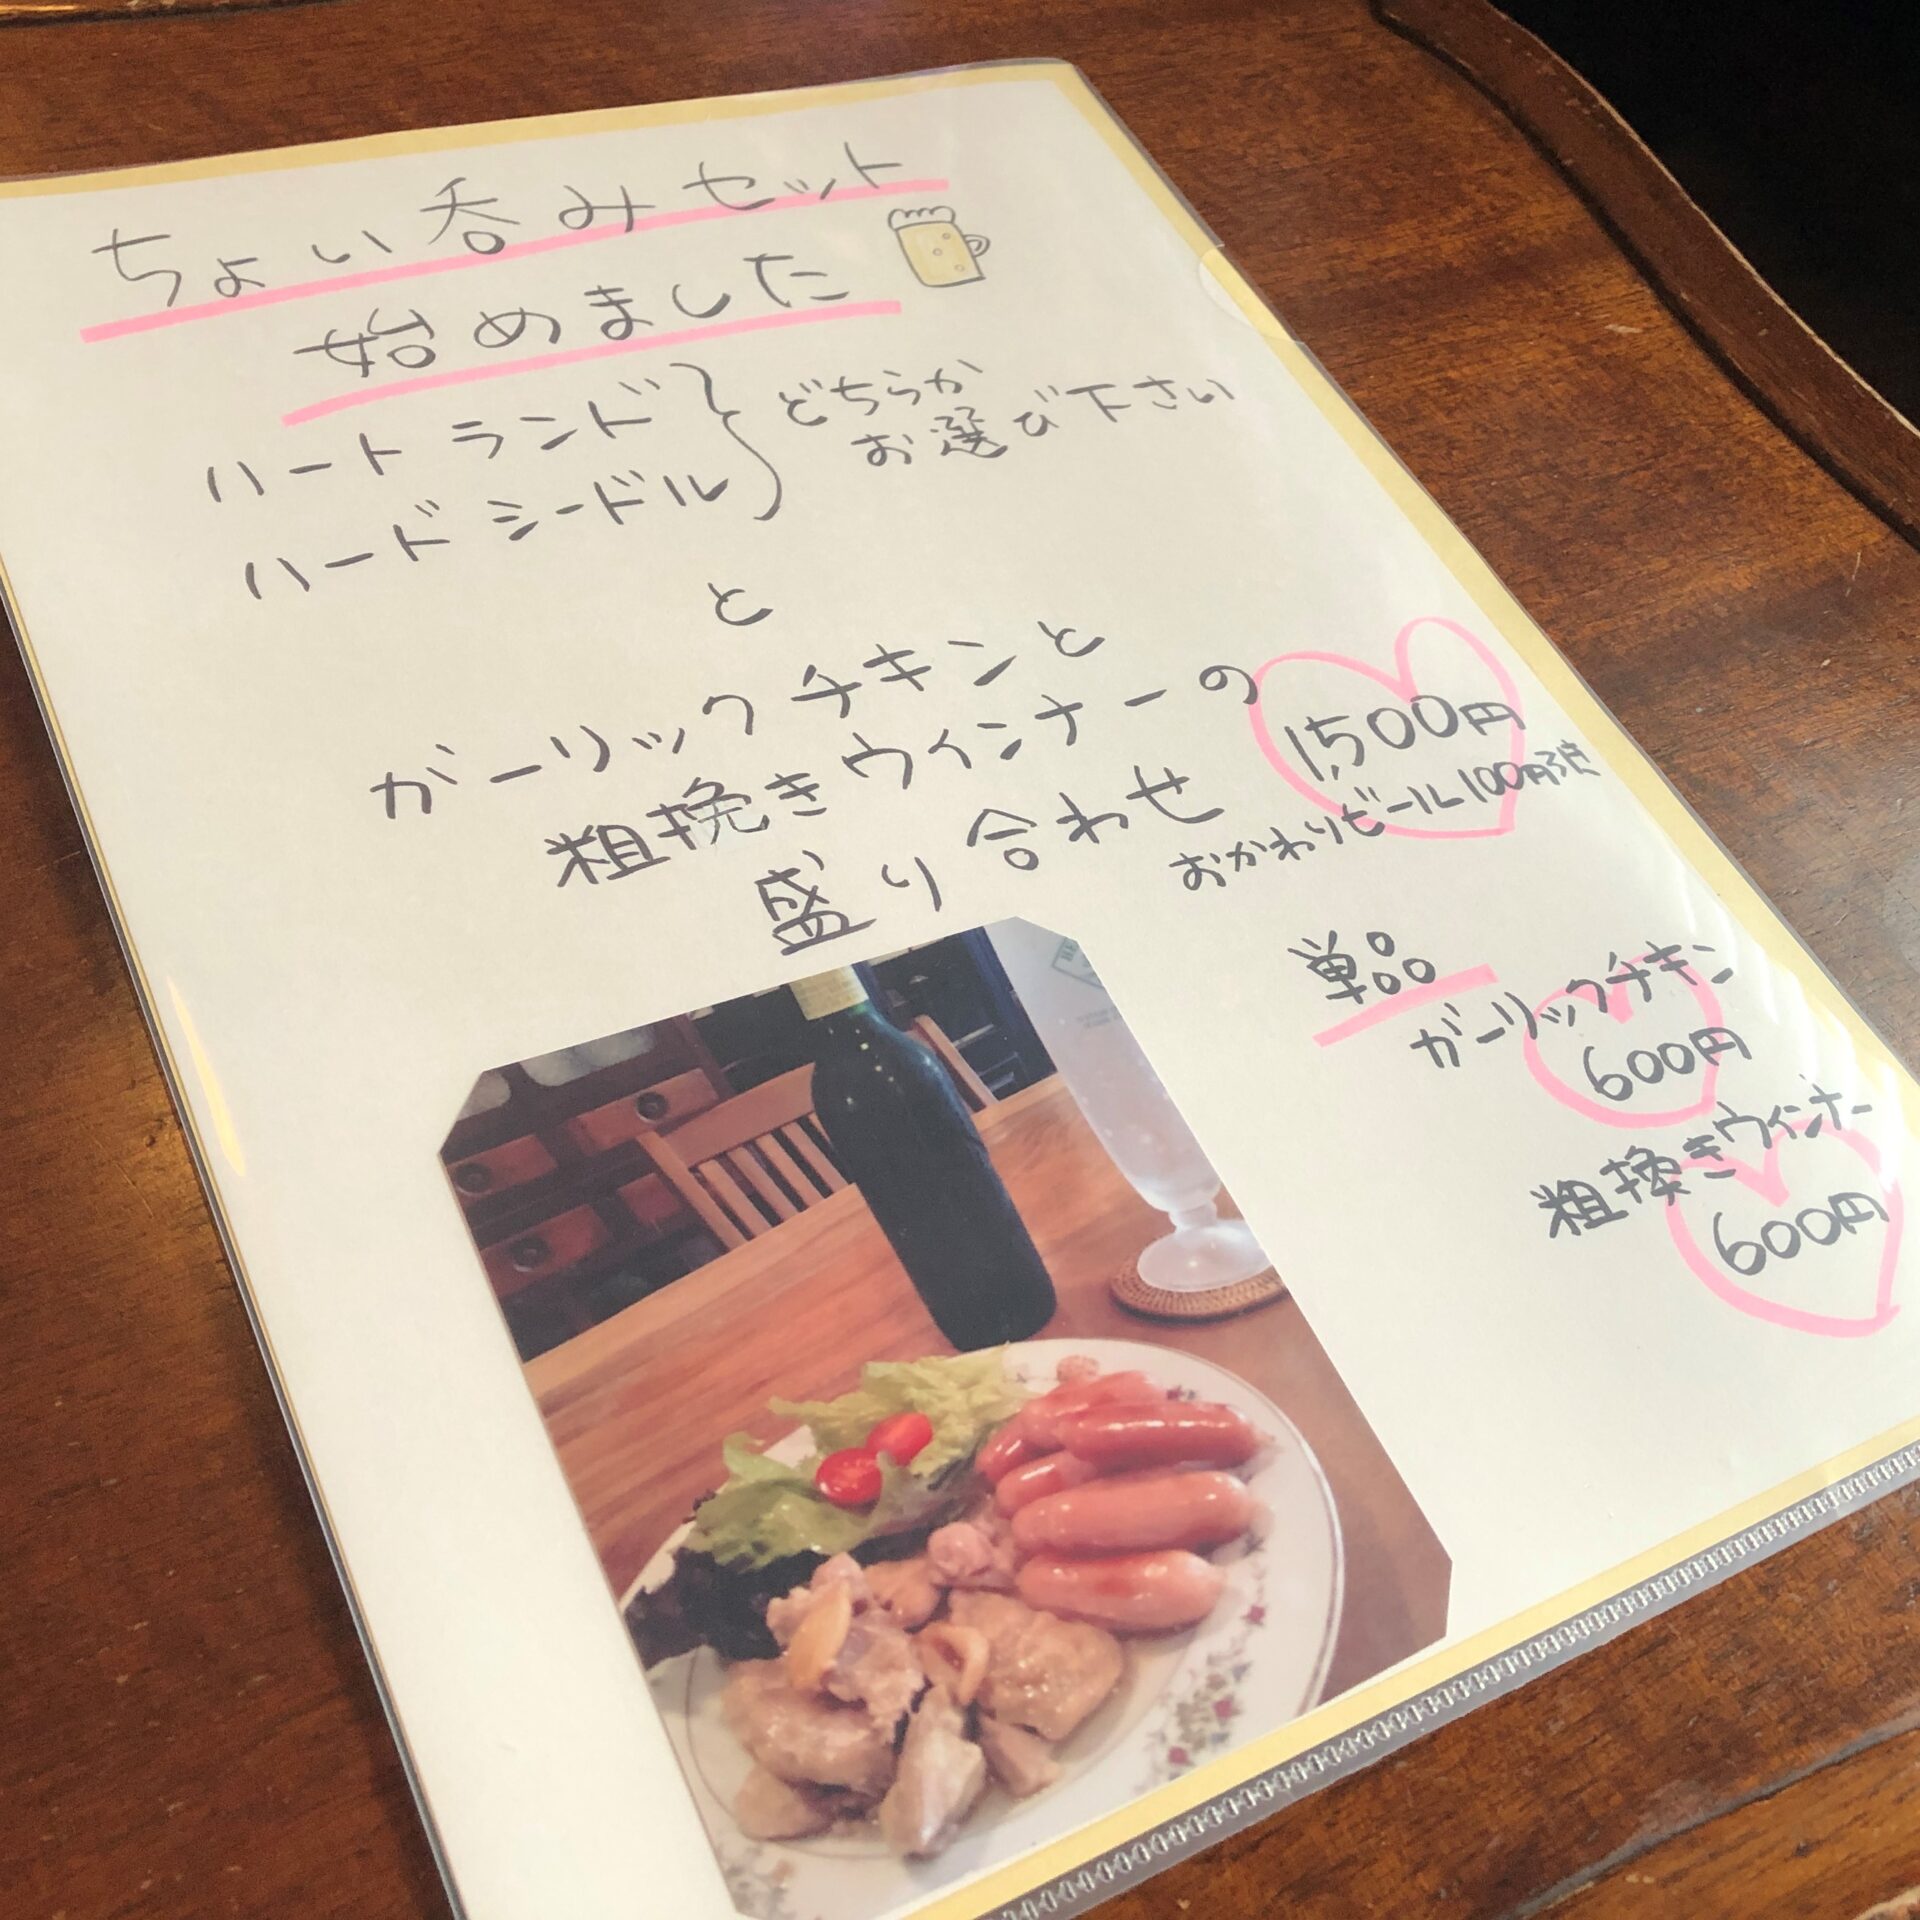 ちょい呑みセット
始めました
ハートランド
ハードシードル
どちらか
お選び下さい
と
ガーリックチキンと
粗挽きウインナーの
盛り合わせ
1,500円
おかわりビール100円引き
単品
ガーリックチキン
600円
粗挽きウインナー
600円